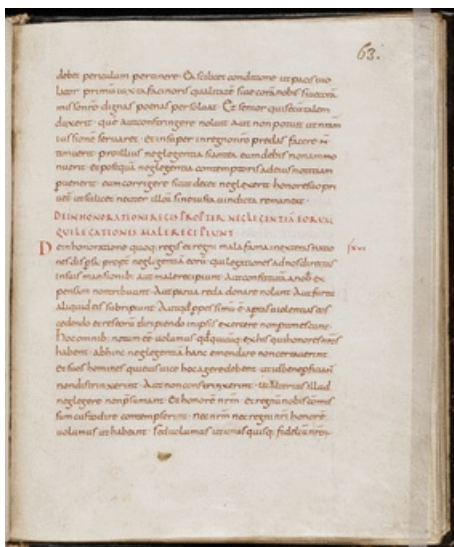 63.
debet periculum pertinere. Ea scilicet conditione ut pacis vio
lator primu iuxta facinoris qualitate sive cora nobis sive cora
misso nro dignas poenas persoluat. Et senior qui secu talem
duxerit. que aut constringere noluit aut non potuit ut nram
iussione servaret. et insuper in regno nro predas facere n
timuerit pro illius neglegentia si ante eum de his non ammo
nuerit. et postqua neglegentia contemptoris ad eius notitiam
pervenerit eum corrigere sicut decet neglexerit honore suo pri
vetur. ut scilicet neuter illoru sine iusta vindicta remaneat.
DE INHONORATIONE REGIS PROPTER NEGLEGENTIA EORUM
QUI LEGATIONES MALE RECIPIUNT
De inhonoratione quoq; regis et regni mala fama in exteras natio
nes dispersa propt neglegentia eoru qui legationes ad nos directas
in suis mansionib; aut male recipiunt. Aut constituta a nob ex
pensam non tribuunt. Aut parvareda donare nolunt. Aut furto
aliquid eis subripiunt. Aut qd
violentias eis
cedendo et res eoru diripiendo in ipsis exercere non pertimescunt.
Hoc omnib; notum ee volumus qd quicuq; ex his qui honores nros
habent. abhinc neglegentia hanc emendare non certaverint.
et suos homines
hoc agere debent. ut ult bene
non distrinxerint. Aut non constrinxerint. ut ulterius illud
neglegere non psumant. Et honore nrm. et regni nobis comis
sum custodire contempserint. nec nrm nec regni nri honore
volumus ut habeant. Sed volumus ut unusquisq; fideliu nroru